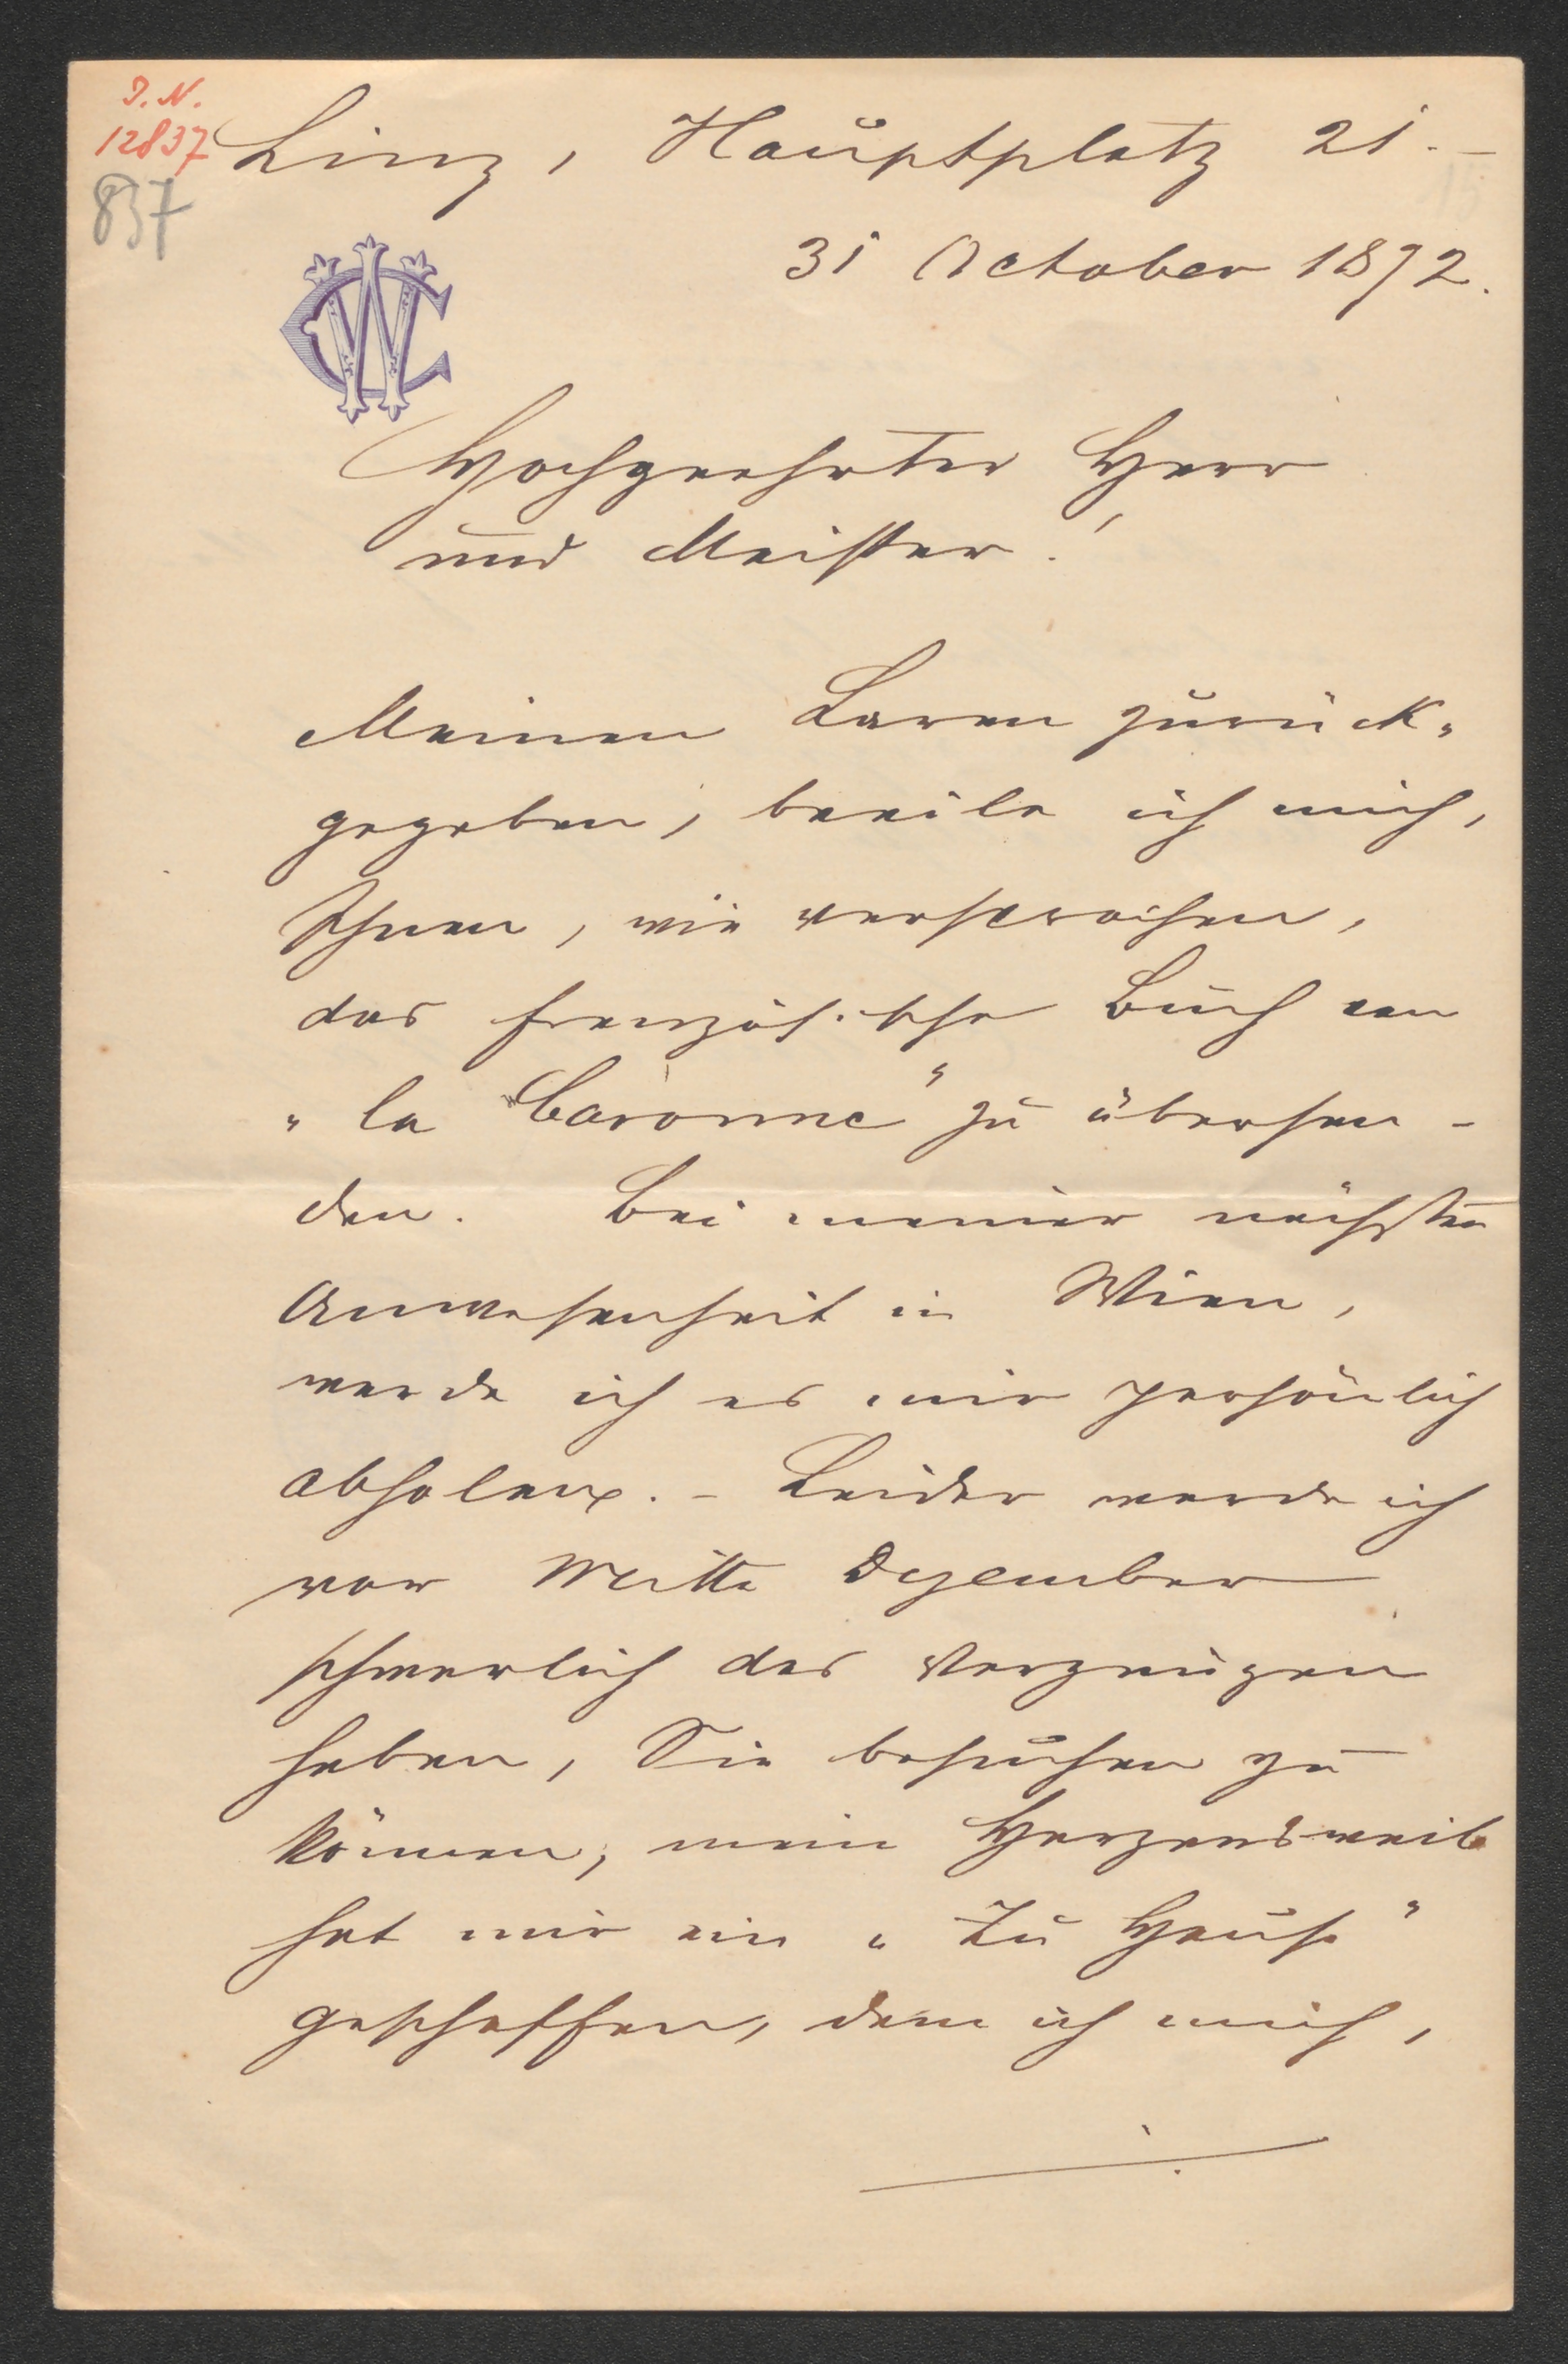 I. N.
12837
837
Linz, Hauptplatz 21. –
31 October 1872.
CW
Hochgeehrter Herr
und Meister!
Meinen Laren zurück-
gegeben, beeile ich mich,
Ihnen, wie versprochen,
das französische Buch von
„la Baronne" zu übersen-
den. Bei meiner nächsten
Anwesenheit in Wien,
werde ich es mir persönlich
abholen. – Leider werde ich
vor Mitte Dezember
schwerlich das Vergnügen
haben, Sie besuchen zu
können, mein Herzensweib
hat mir ein „Zu Hause"
geschaffen, dem ich mich,